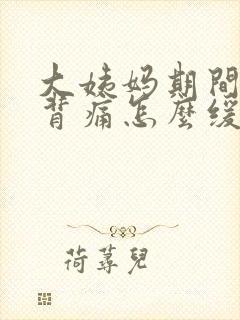 大姨妈期間
背痛怎麼緩
荷蕁兒